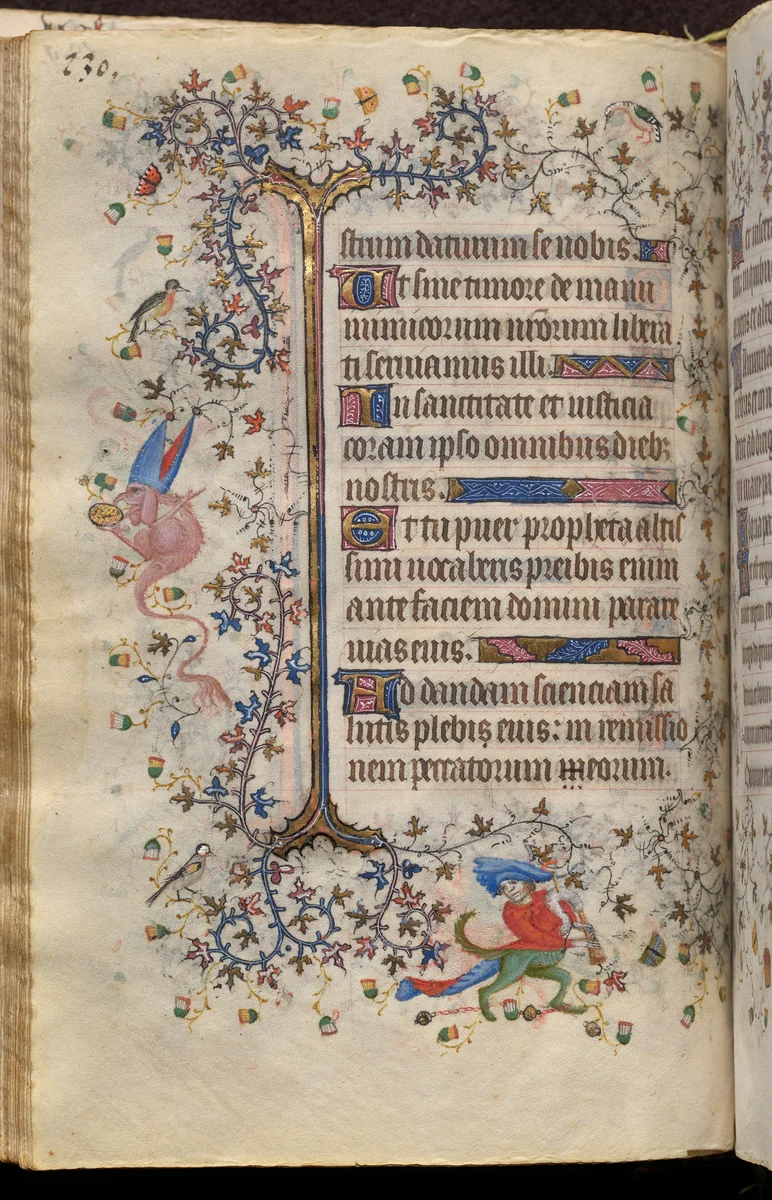 230.
strum daturum se nobis.
Et sine timore de manu
inimicorum nrōrum libera
ti seruiamus illi.
In sanctitate et iusticia
coram ipso omnibus diebꝫ
nostris.
Et tu puer propheta altis
simi uocaberis preibis enim
ante faciem domini parare
uias eius.
Ad dandam scienciam sa
lutis plebis eius: in remissio
nem peccatorum meorum.